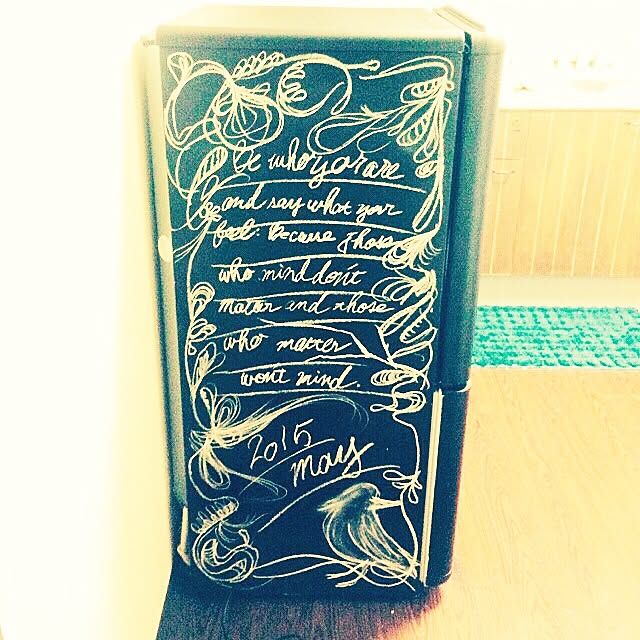 be who you are
and say what your
feel: Because those
who mind don't
matter and those
who matter
won't mind.
2015
May